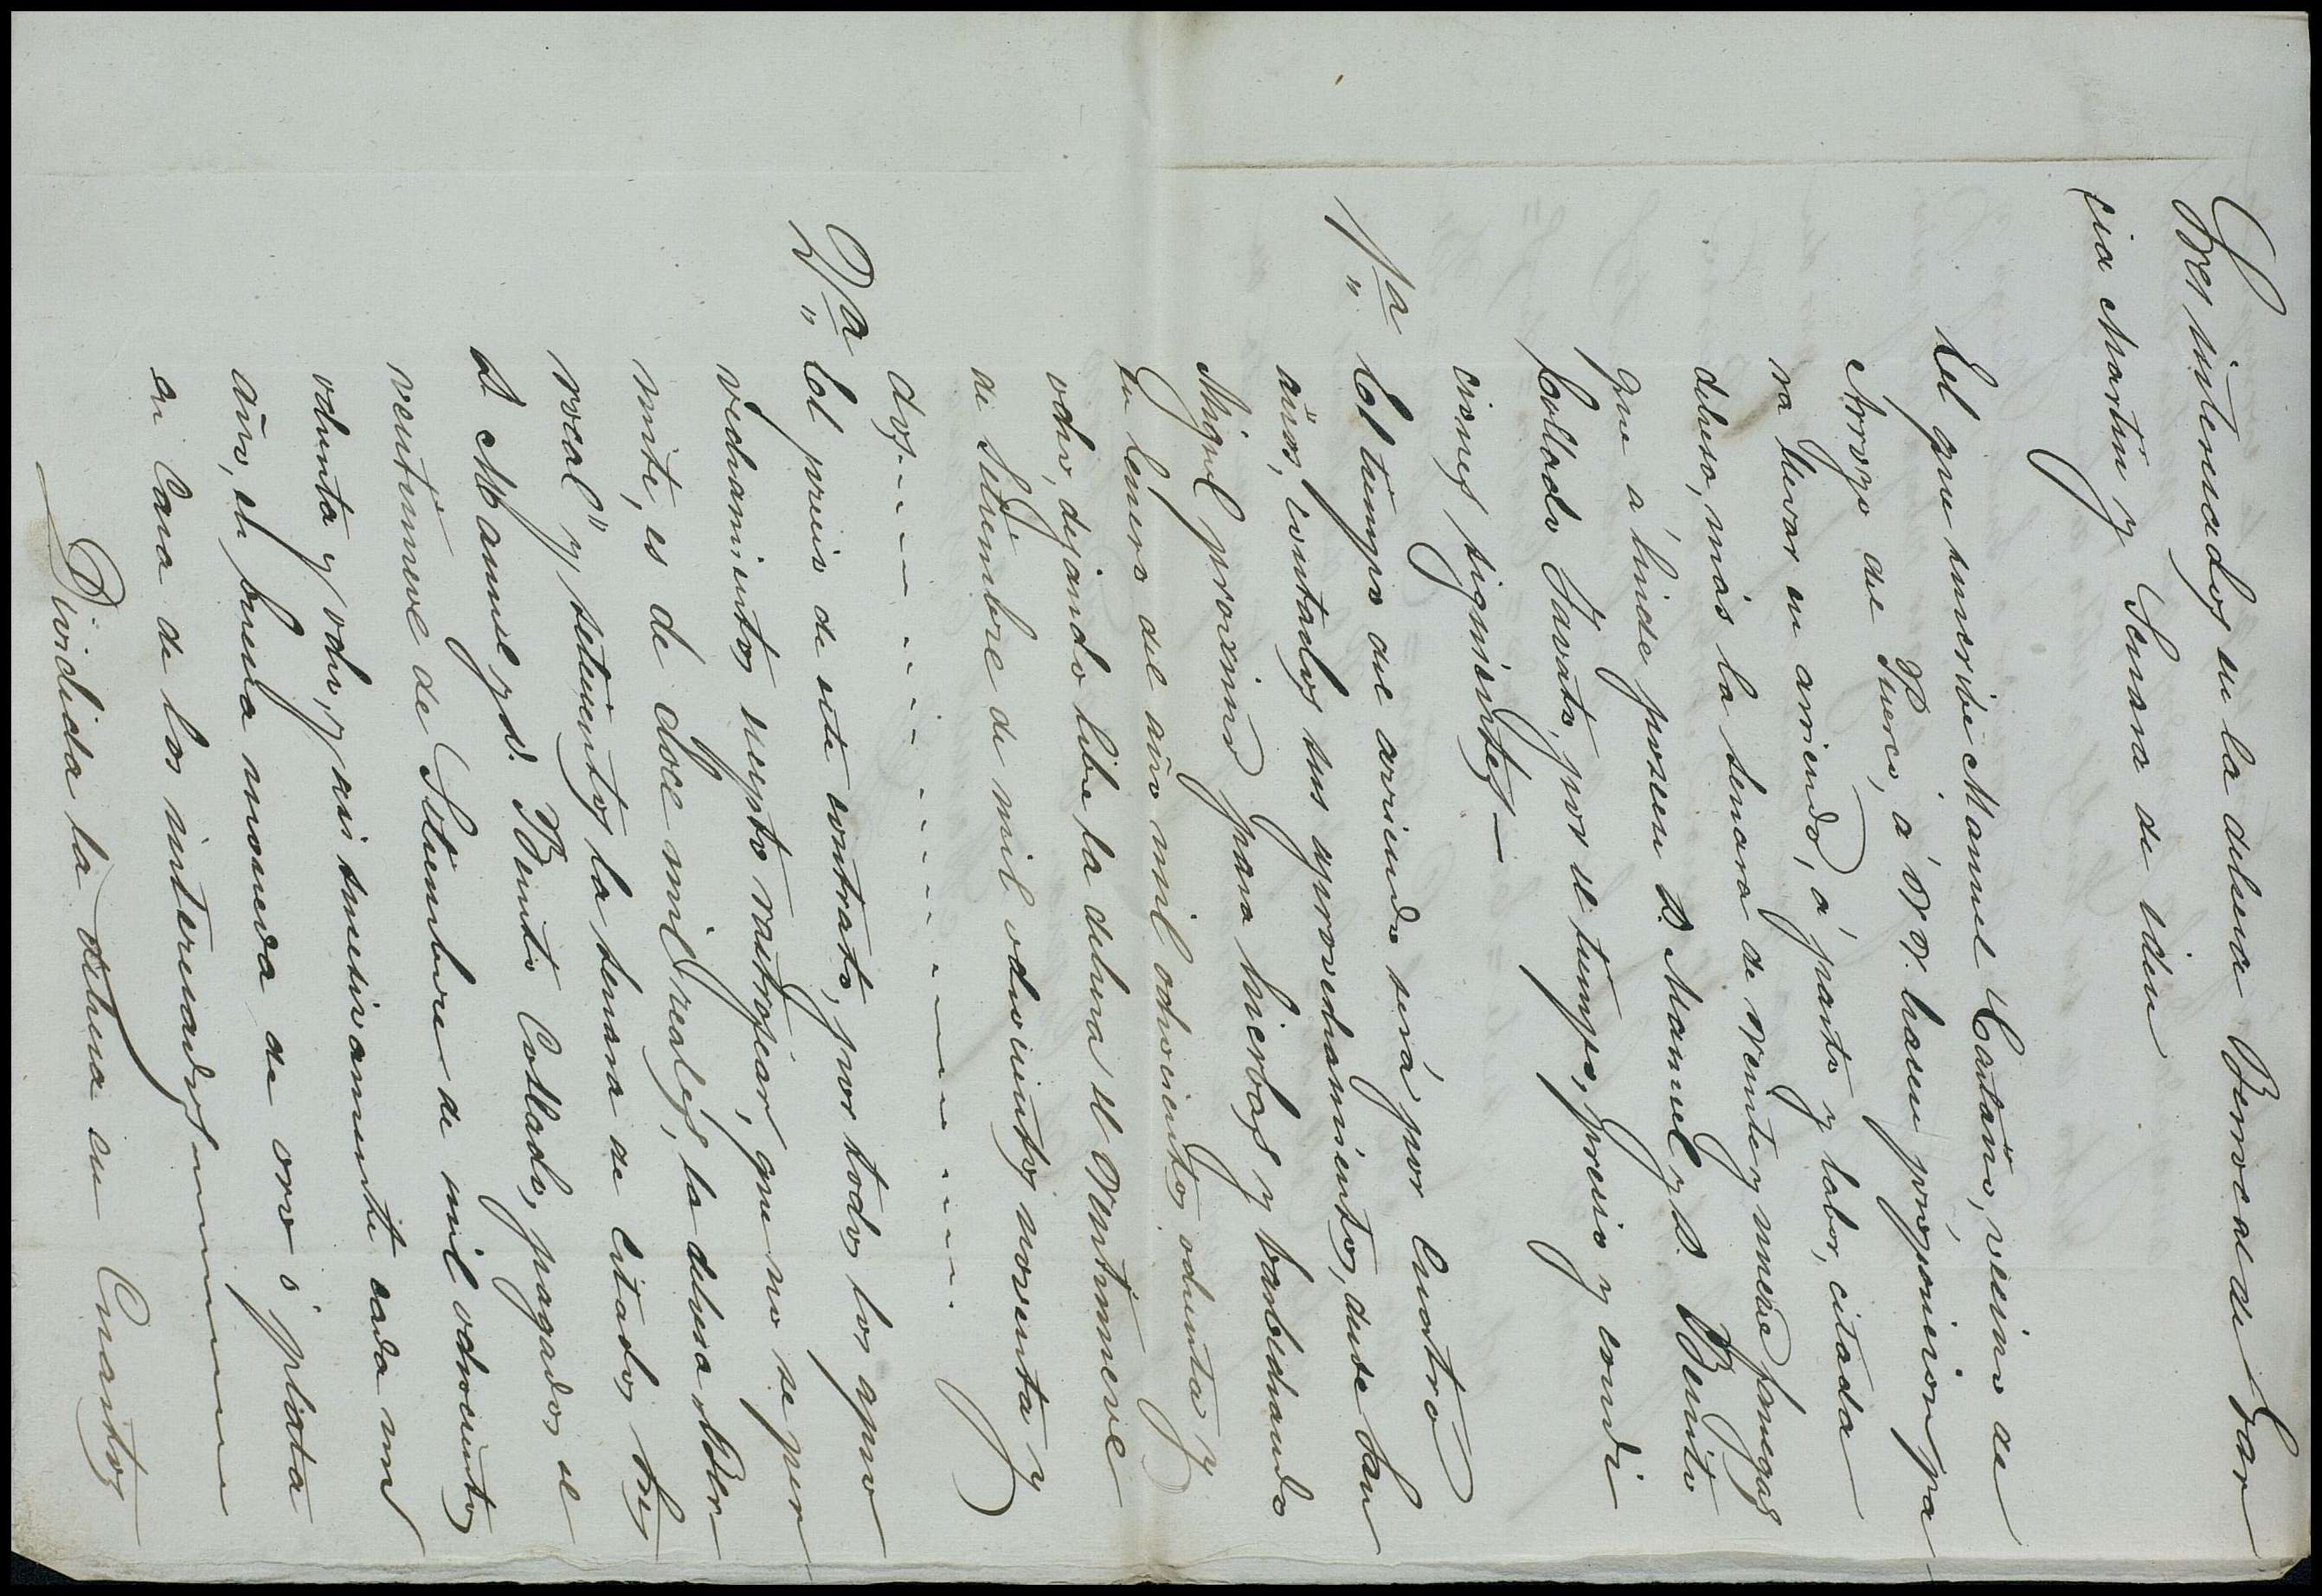 Sres interesados en la dehesa Berrocal de Gar
cia Martin y Serna de idem
El que suscribe Manuel Castaño, vecino de
Arroyo del Puerco, á V.V. hacen proposicion pa
ra llevar en arriendo, á pasto y labor, citada
dehesa, más la senara de veinte y nueve fanegas
que á linde poseen D. Manuel y D. Benito
Collado Javato, por el tiempo, precio y condi
ciones siguientes—
1ª El tiempo del arriendo será por Cuatro
años, contados sus aprovechamientos, desde San
Miguel proximo para hierbas y barbechando
en Enero del año mil ochocientos ochenta y
ocho, dejando libre la dehesa el Veintinueve
de Setiembre de mil ochocientos noventa y
dos
2ª El precio de este contrato, por todos los apro
vechamientos escepto rastrojear, que no se per
mite, es de doce mil reales, la dehesa "Ber
rocal" y setecientos la senara de citados tres
D Manuel y D. Benito Collado, pagados el
veintinueve de Setiembre de mil ochocientos
ochenta y ocho, y asi sucesivamente cada un
año, en buena moneda de oro ó plata
en Casa de los interesados
Dividida la dehesa en Cuartos